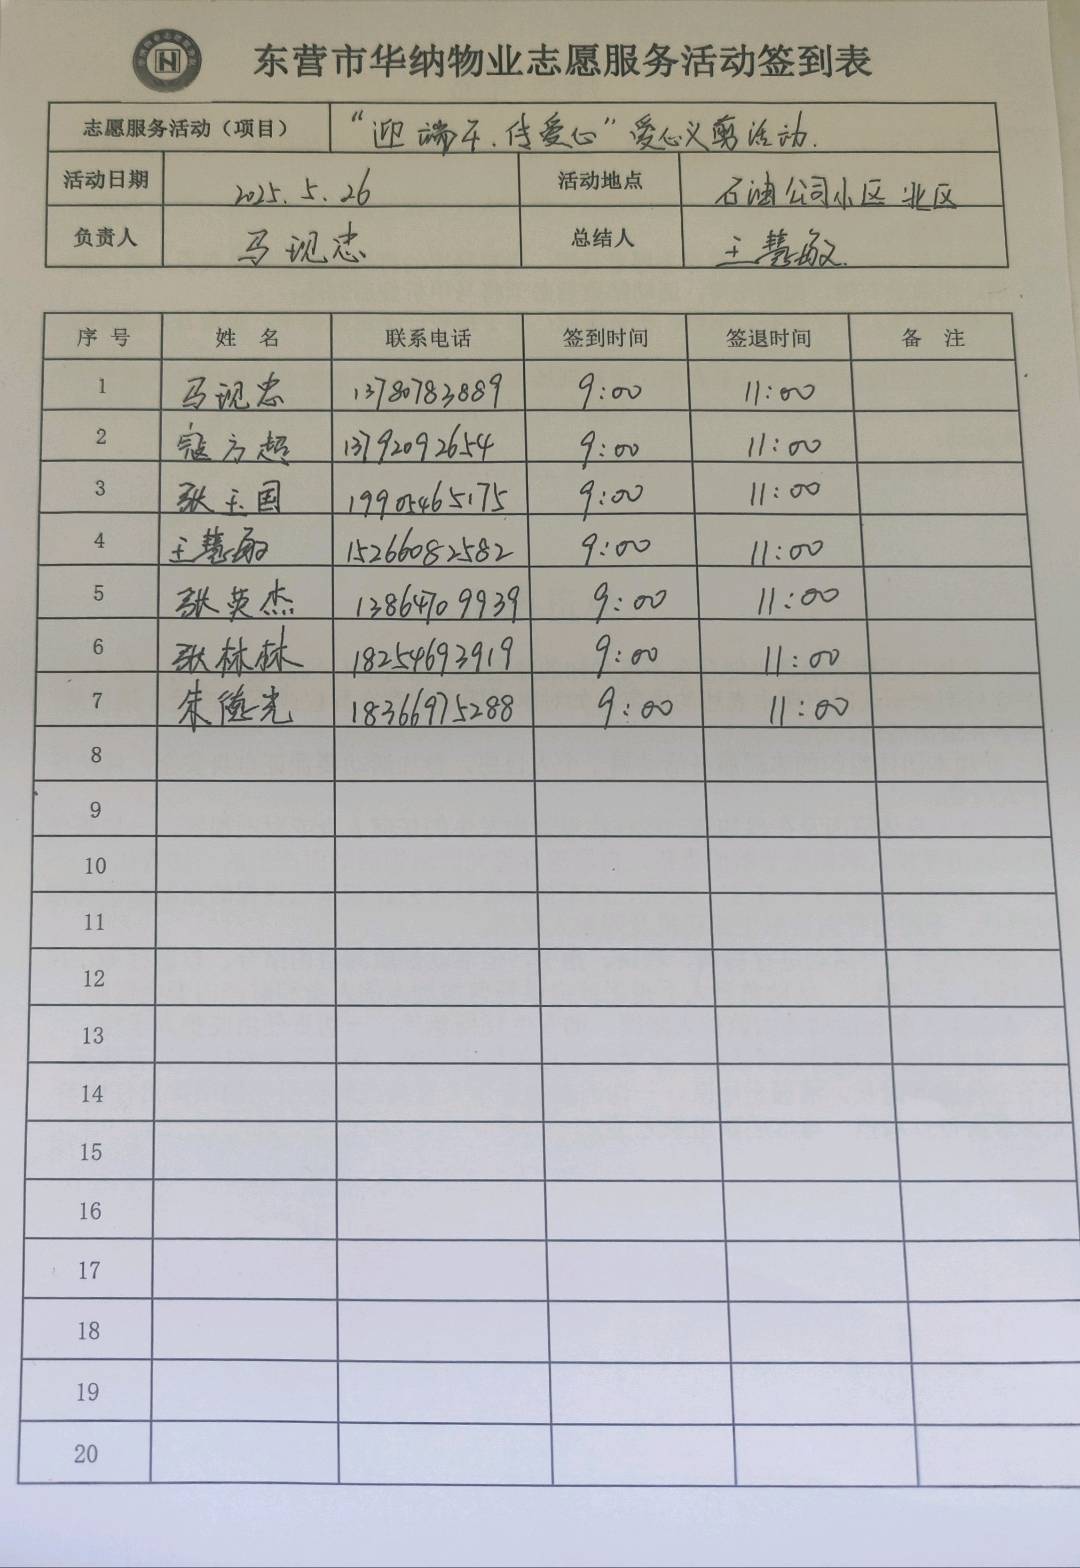 东营市华纳物业志愿服务活动签到表
志愿服务活动（项目） “迎端午.传爱心”爱心义剪活动.
活动日期 2025.5.26 活动地点 石油公司小区北区
负责人 马现忠 总结人 王慧敏
序号 姓名 联系电话 签到时间 签退时间 备注
1 马现忠 13780783889 9:00 11:00
2 寇方超 13792092654 9:00 11:00
3 张玉国 19905465175 9:00 11:00
4 王慧敏 15266082582 9:00 11:00
5 张英杰 13864709939 9:00 11:00
6 张林林 18254693919 9:00 11:00
7 朱德光 18366975288 9:00 11:00
8
9
10
11
12
13
14
15
16
17
18
19
20